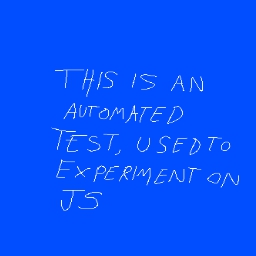 THIS IS AN
AUTOMATED
TEST, USED TO
EXPERIMENT ON
JS